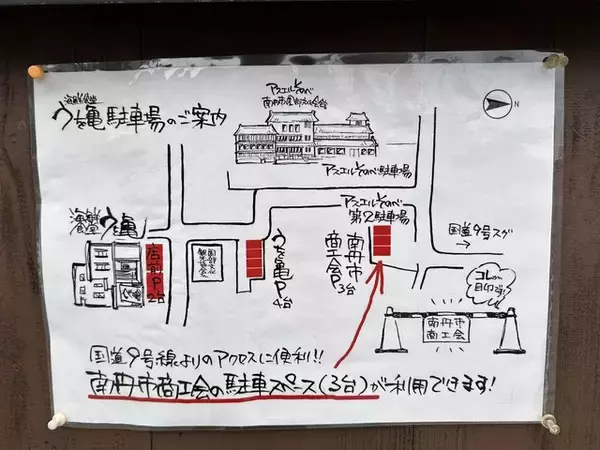 海鮮食堂
うを亀 駐車場のご案内
アスエルそのべ
アスエルそのべ駐車場
N
アスエルそのべ
第2駐車場
国道9号スグ
海鮮食堂
うを亀
店前P
2台
うを亀P
4台
南丹市
商工会P
3台
コレが
目印です!
南丹市
商工会
国道9号線よりのアクセスに便利!!
南丹市商工会の駐車スペース(3台)が利用できます!